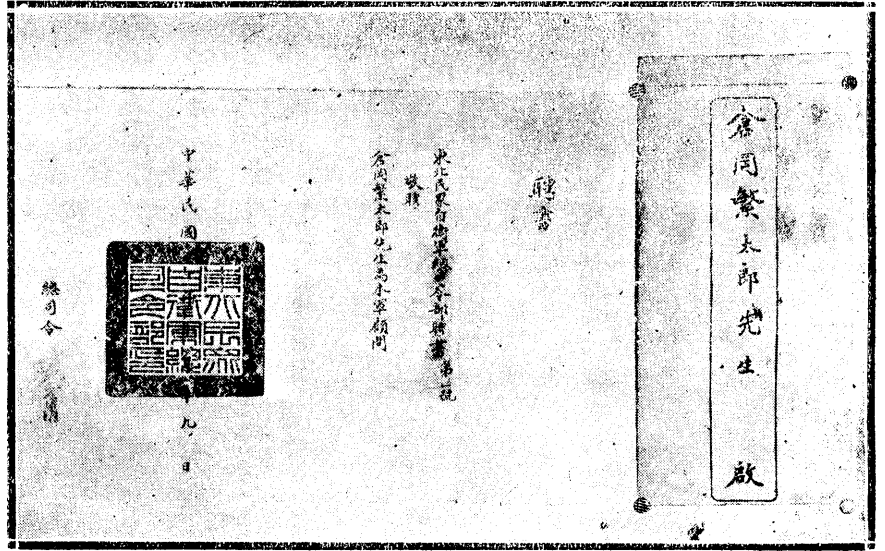 倉岡繁太郎先生 啟
聘書
東北民眾自衛軍總司令部聘書第 號
敬聘
倉岡繁太郎先生為本軍顧問
中華民國 年九 日
東北民眾
自衛軍總
司令部印
總司令